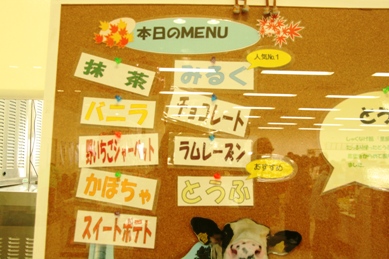 本日のMENU
人気№1
抹茶
みるく
バニラ
チョコレート
野いちごシャーベット
ラムレーズン
おすすめ
かぼちゃ
とうふ
スイートポテト